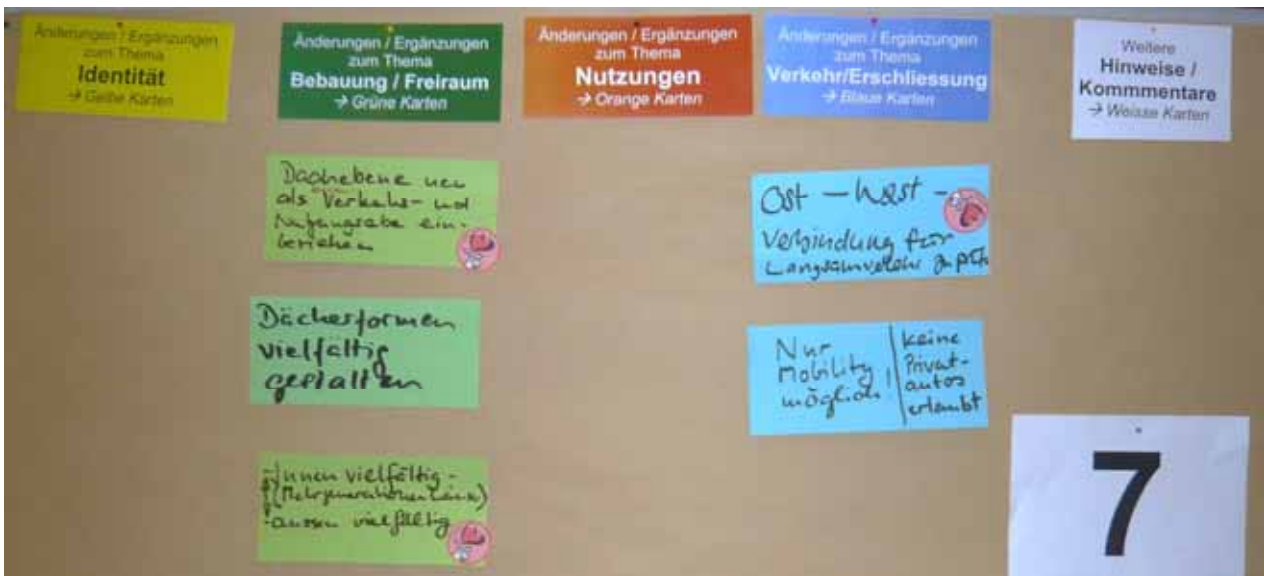 Änderungen / Ergänzungen
zum Thema
Identität
→ Gelbe Karten
Änderungen / Ergänzungen
zum Thema
Bebauung / Freiraum
→ Grüne Karten
Änderungen / Ergänzungen
zum Thema
Nutzungen
→ Orange Karten
Änderungen / Ergänzungen
zum Thema
Verkehr/Erschliessung
→ Blaue Karten
Weitere
Hinweise /
Kommmentare
→ Weisse Karten
Dachebene neu
als Verkehrs- und
ein-
beziehen
Dächerformen
vielfältig
gestalten
- Innen vielfältig -
(Mehrgenerationenhäuser)
- aussen vielfältig
Ost - West -
Verbindung für
Langsamverkehr
Nur
Mobility
möglich,
keine
Privat-
autos
erlaubt
7